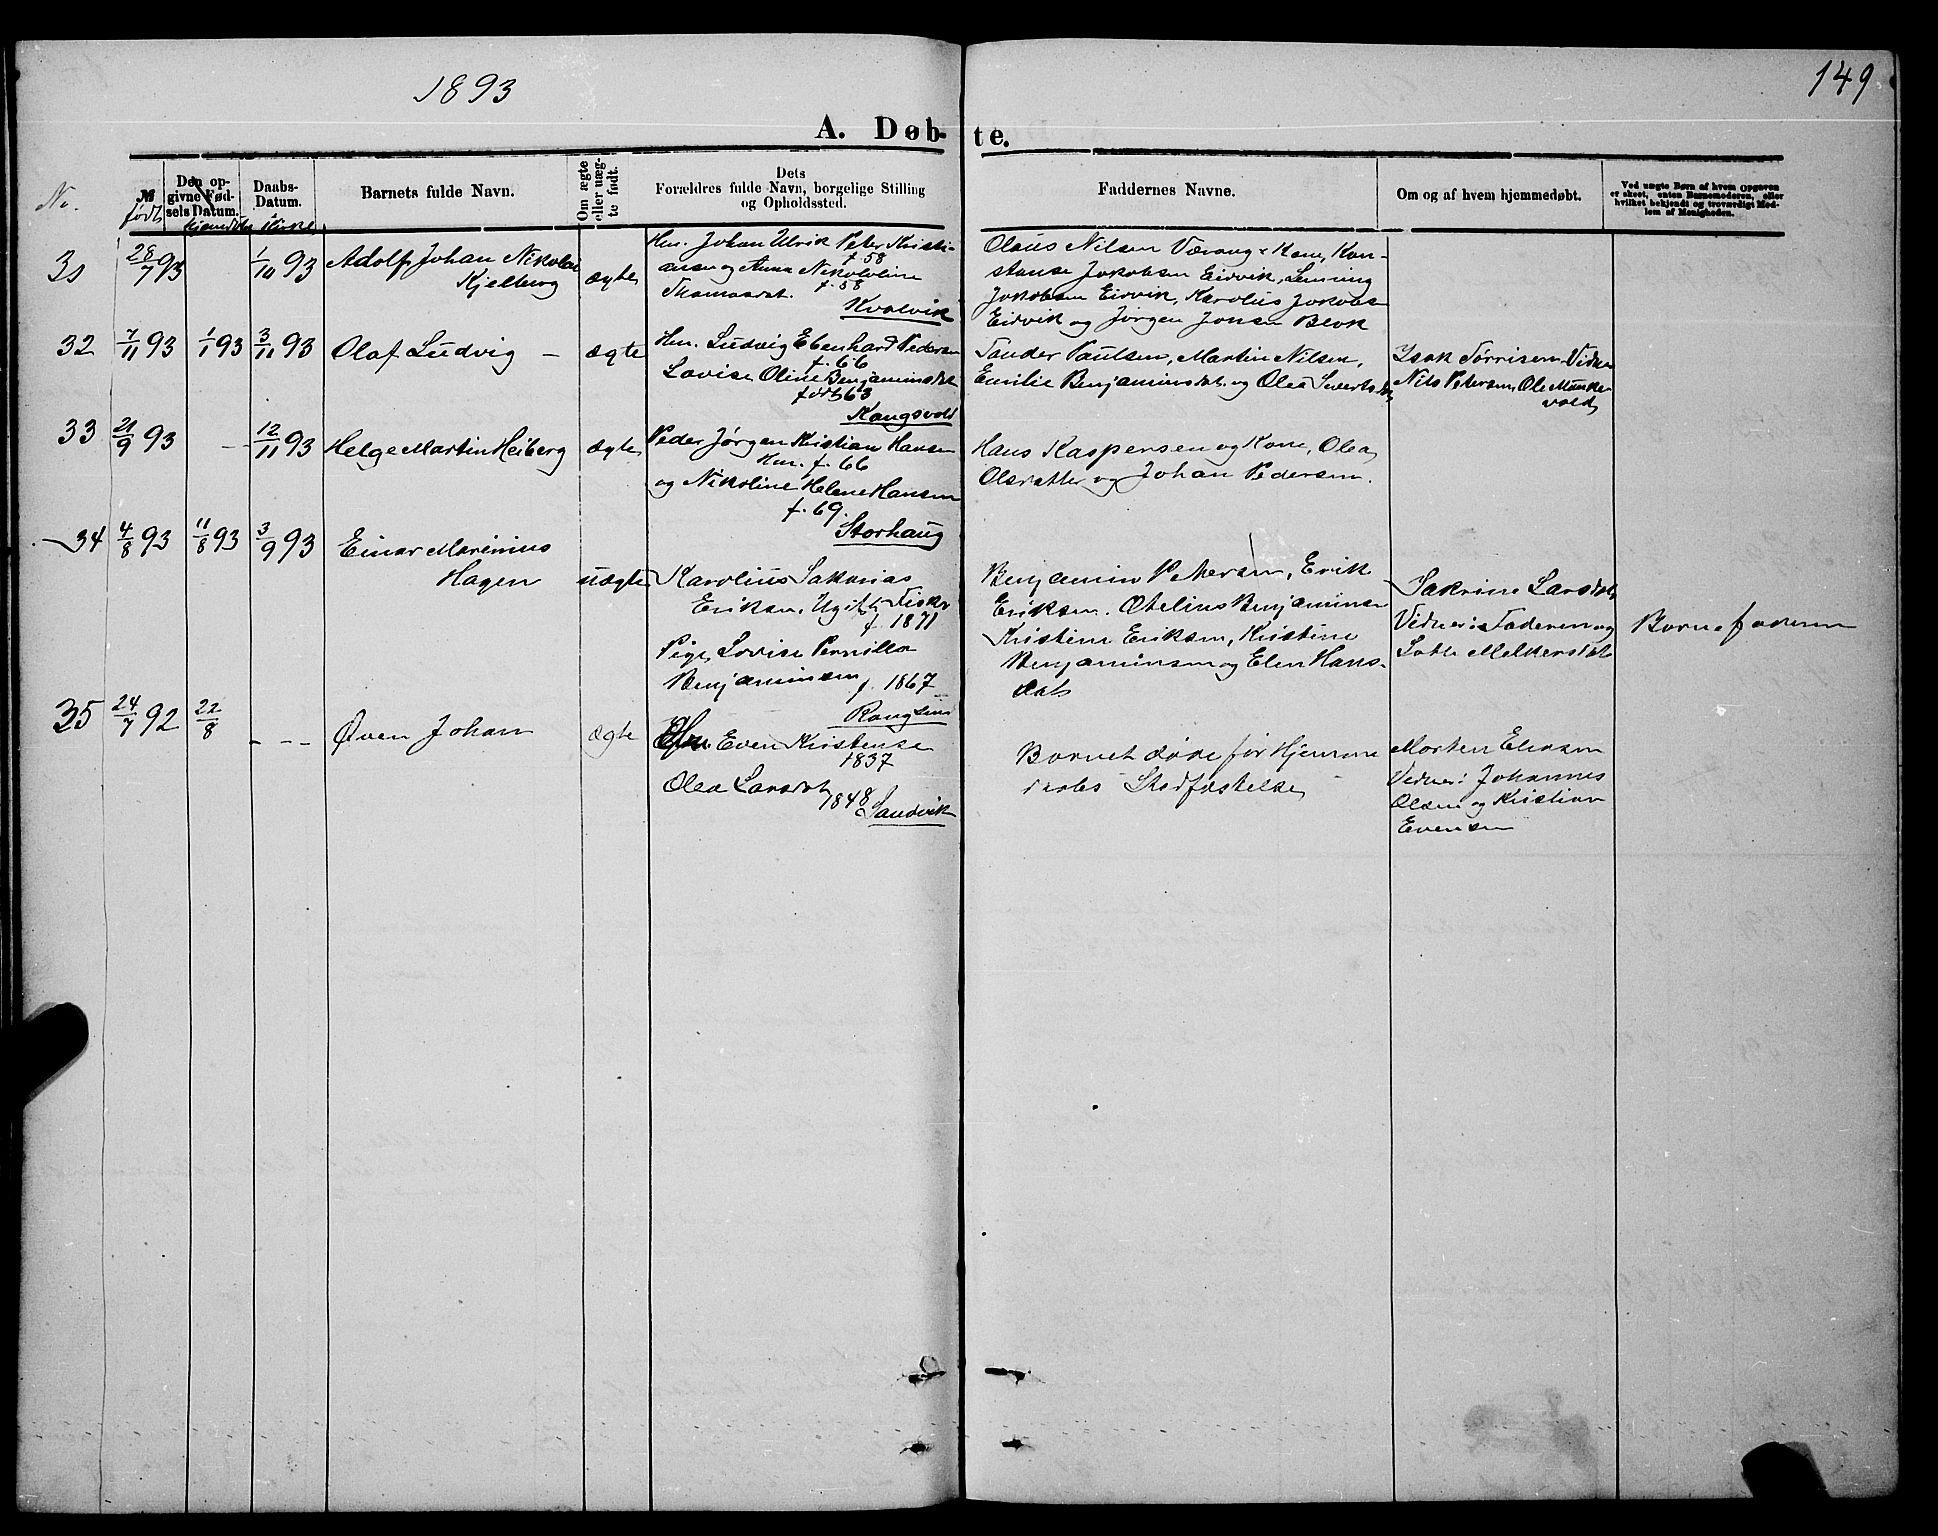 1893
149
A. Døb-te.
No. M født
Den opgivne Fødsels Datum. hjemdøbt
Daabs-Datum. i Kirke
Barnets fulde Navn.
Om ægte eller uægte født.
Dets Forældres fulde Navn, borgelige Stilling og Opholdssted.
Faddernes Navne.
Om og af hvem hjemmedøbt.
Ved uægte Børn af hvem Opgaven er skeet, enten Barnemoderen, eller hvilket bekjendt og troværdigt Medlem af Menigheden.
31 28/7 93 1/10 93 Adolf Johan Nikolai
Kjelberg
ægte
Hm. Johan Ulrik Peter Kristi-
ansen og Anna Nikololine
f. 58
f. 58
Thomasdat.
Kvalvik
Olaus Nilsen Værang & Kone, Kon-
stanse Jakobsen Eidvik, Lenning
Jakobsen Eidvik, Karolius Jakobs
Eidvik og Jørgen Jonsen Blok
32 7/11 93 1/1 93 3/11 93 Olaf Ludvig –
ægte
Hm. Ludvig Ebenhard Pedersen
f. 66
Lovise Oline Benjaminsdat
født 63
Kongsvold
Sander Paulsen, Martin Nilsen,
Emilie Benjaminsdat. og Olea Sivertsdat
Isak Tørrisen Vidner
Nils Petersen, Ole Munke
vold
33 21/9 93 – 12/11 93 Helge Martin Heiberg
ægte
Peder Jørgen Kristian Hansen
Hm. f. 66
og Nikoline Helene Hansen
f. 69.
Storhaug
Hans Kaspersen og Kone, Olea
Olsdatter og Johan Pedersen.
34 4/8 93 11/8 93 3/9 93 Einar Marinius
Hagen
uægte
Karolius Sakarias
Eriksen. Ugift Fisker
f. 1871
Pige Lovise Pernilla
Benjaminsen f. 1867
Benjamin Petersen, Erik
Eriksen. Otelius Benjaminsen
Kristine Eriksen, Kristine
Benjaminsen og Elen Hans-
dat
Sakrine Larsdat,
Vidner: Faderen og
Lotte Melkersdat
Barnefaderen
35 24/7 92 22/8 - - - Øven Johan
ægte
Hm. Even Kristense
1837
Olea Larsdat
1848
Sandvik
Barnet døde før Hjemme
daabs Stadfæstelse
Morten Eliasen
Vidner: Johannes
Olsen og Kristian
Evensen